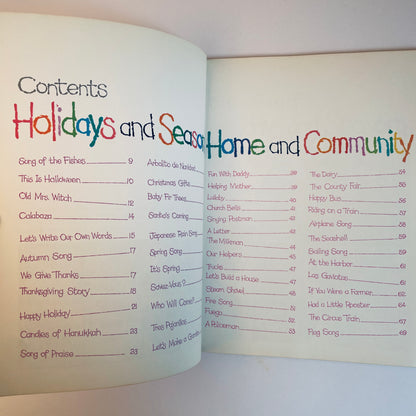 Contents
Holidays and Season
Song of the Fishes 9
This Is Halloween 10
Old Mrs. Witch 12
Calabaza 14
Let's Write Our Own Words 15
Autumn Song 17
We Give Thanks 17
Thanksgiving Story 18
Happy Holiday 21
Candles of Hanukkah 23
Song of Praise 23
Arbolito de Navidad
Christmas Gifts
Baby Fir Trees
Santa's Coming
Japanese Rain Song
Spring Song
It's Spring
Savez-Vous?
Who Will Come?
Tres Pajarillos
Let's Make a Garden
Home and Community
Fun With Daddy 39
Helping Mother 39
Lullaby 40
Church Bells 41
Singing Postman 42
A Letter
The Milkman 44
Our Helpers 45
Trucks 47
Let's Build a House 47
Steam Shovel 48
Fire Song 51
Fuego 52
A Policeman 53
The Dairy 54
The County Fair
Happy Bus 56
Riding on a Train 57
Airplane Song 58
The Seashell 59
Sailing Song 59
At the Harbor 61
Las Gaviotas 61
If You Were a Farmer 62
Had a Little Rooster 64
The Circus Train 67
Flag Song 69